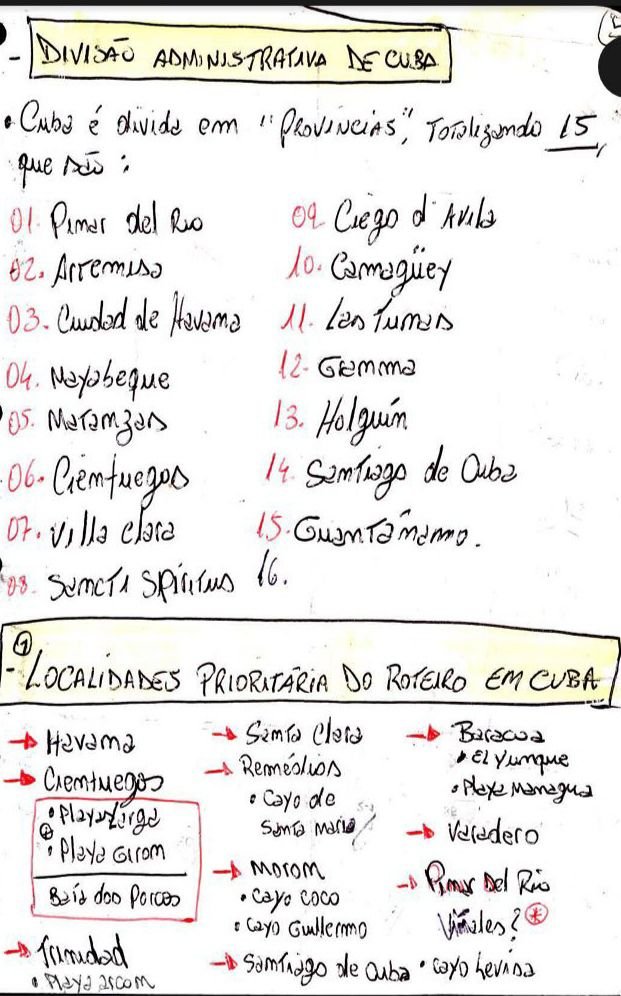 - DIVISÃO ADMINISTRATIVA DE CUBA
• Cuba é divida em "PROVINCIAS", Totalizando 15,
que são:
01. Pinar del Rio
02. Arremisa
03. Ciudad de Havana
04. Mayabeque
05. Matanzas
06. Cienfuegos
07. Villa Clara
08. Sancti Spiritus
09. Ciego d'Avila
10. Camagüey
11. Las Tunas
12. Gramma
13. Holguín
14. Santiago de Cuba
15. Guantánamo.
16.
①
- LOCALIDADES PRIORITÁRIA DO ROTEIRO EM CUBA
→ Havana
→ Cienfuegos
• Playa Larga
• Playa Giron
Baía dos Porcos
→ Trinidad
• Playa Ancon
→ Santa Clara
→ Remédios
• Cayo de
Santa Maria
→ Moron
• Cayo Coco
• Cayo Guillermo
→ Santiago de Cuba
→ Baracoa
• El Yunque
• Playa Managua
→ Varadero
→ Pinar Del Rio
Viñales?
• Cayo Levisa